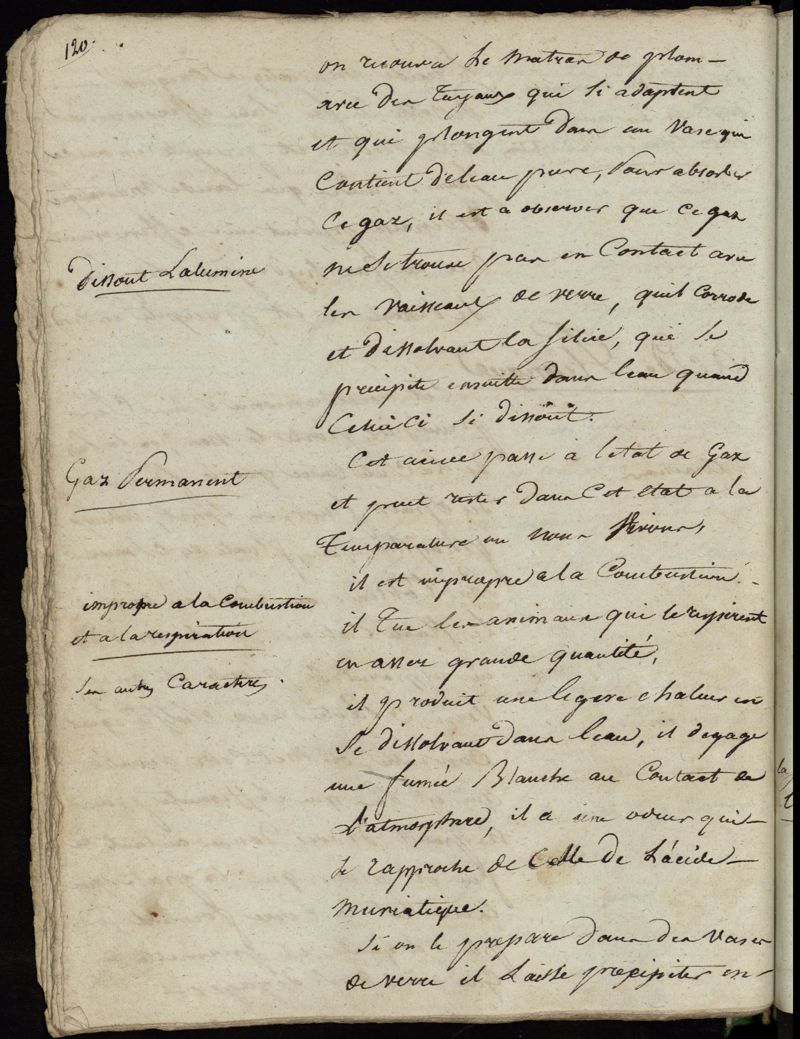 120.
on recouvre le matras de plom-
avec des Tuyaux qui si adaptent
et qui plongent dans un vase qui
Contient deleau pure, Pour absorber
Ce gaz, il est a observer que ce gaz
ne se trouve pas en Contact avec
Dissout Lalumine
les vaisseaux de verre, quil Corrode
et dissolvant la silice, qui se
precipite ensuitte dans leau quand
Celui Ci si dissout.
Cet acide passe à letat de Gaz
Gaz Permanent
et peut rester dans Cet etat a la
Temparature ou nous vivons,
il est impropre a la Combustion.
impropre a la Combustion
et a la respiration
il Tue les animaux qui le respirent
en assez grande quantité,
Ses autres Caractres.
il produit une legere chaleur en
se dissolvant dans leau, il degage
une fumée Blanche au Contact de
L'atmosphere, il a une odeur qui
se rapproche de Celle de Lacide
muriatique.
Si on le prepare dans des vases
de verre il Laisse precipiter en-